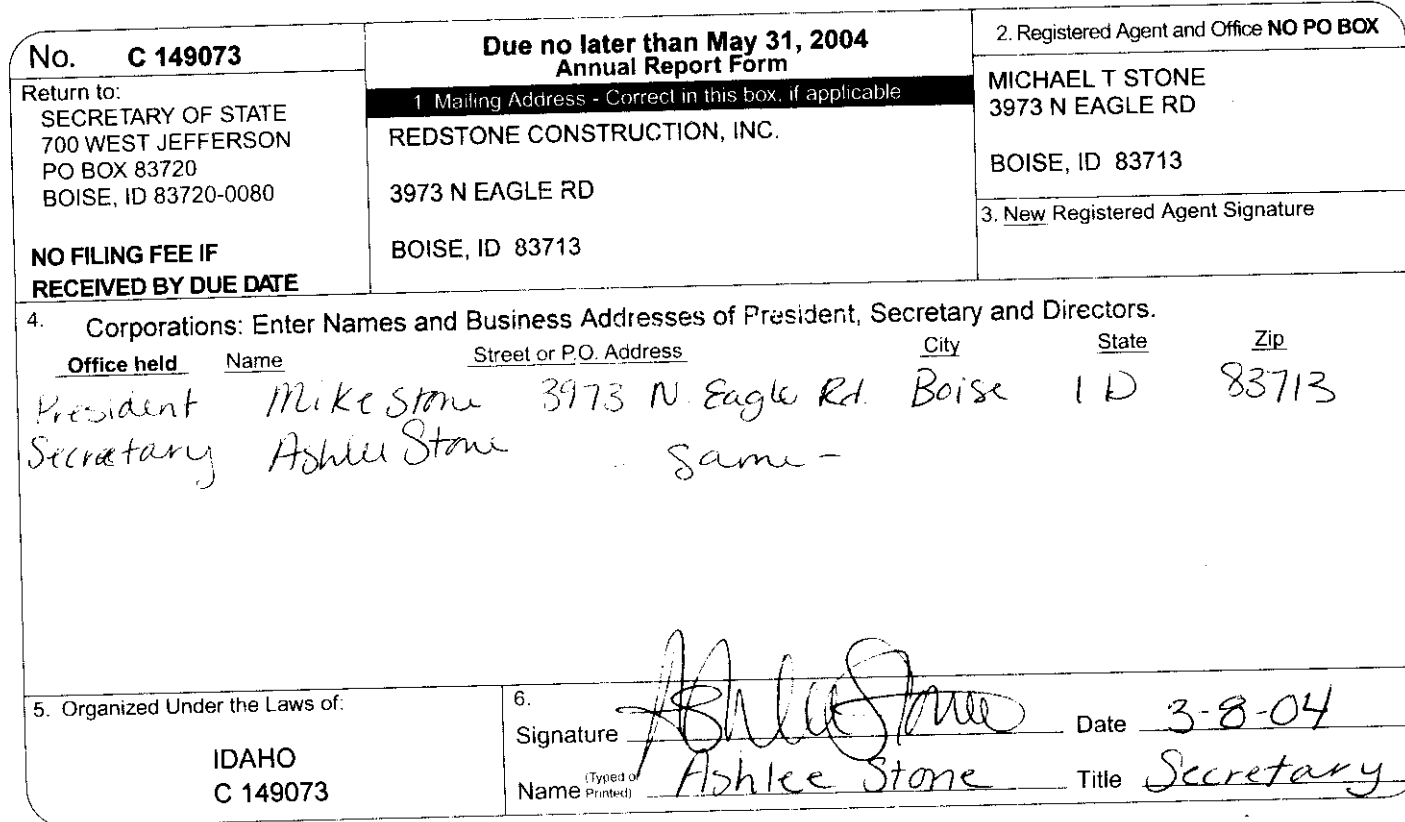 No. C 149073
Return to:
SECRETARY OF STATE
700 WEST JEFFERSON
PO BOX 83720
BOISE, ID 83720-0080
NO FILING FEE IF
RECEIVED BY DUE DATE
Due no later than May 31, 2004
Annual Report Form
1 Mailing Address - Correct in this box, if applicable
REDSTONE CONSTRUCTION, INC.
3973 N EAGLE RD
BOISE, ID 83713
2. Registered Agent and Office NO PO BOX
MICHAEL T STONE
3973 N EAGLE RD
BOISE, ID 83713
3. New Registered Agent Signature
4. Corporations: Enter Names and Business Addresses of President, Secretary and Directors.
Office held Name Street or P.O. Address City State Zip
President Mike Stone 3973 N. Eagle Rd. Boise ID 83713
Secretary Ashlee Stone Same -
5. Organized Under the Laws of:
IDAHO
C 149073
6.
Signature Ashlee Stone Date 3-8-04
Name (Typed or Printed) Ashlee Stone Title Secretary